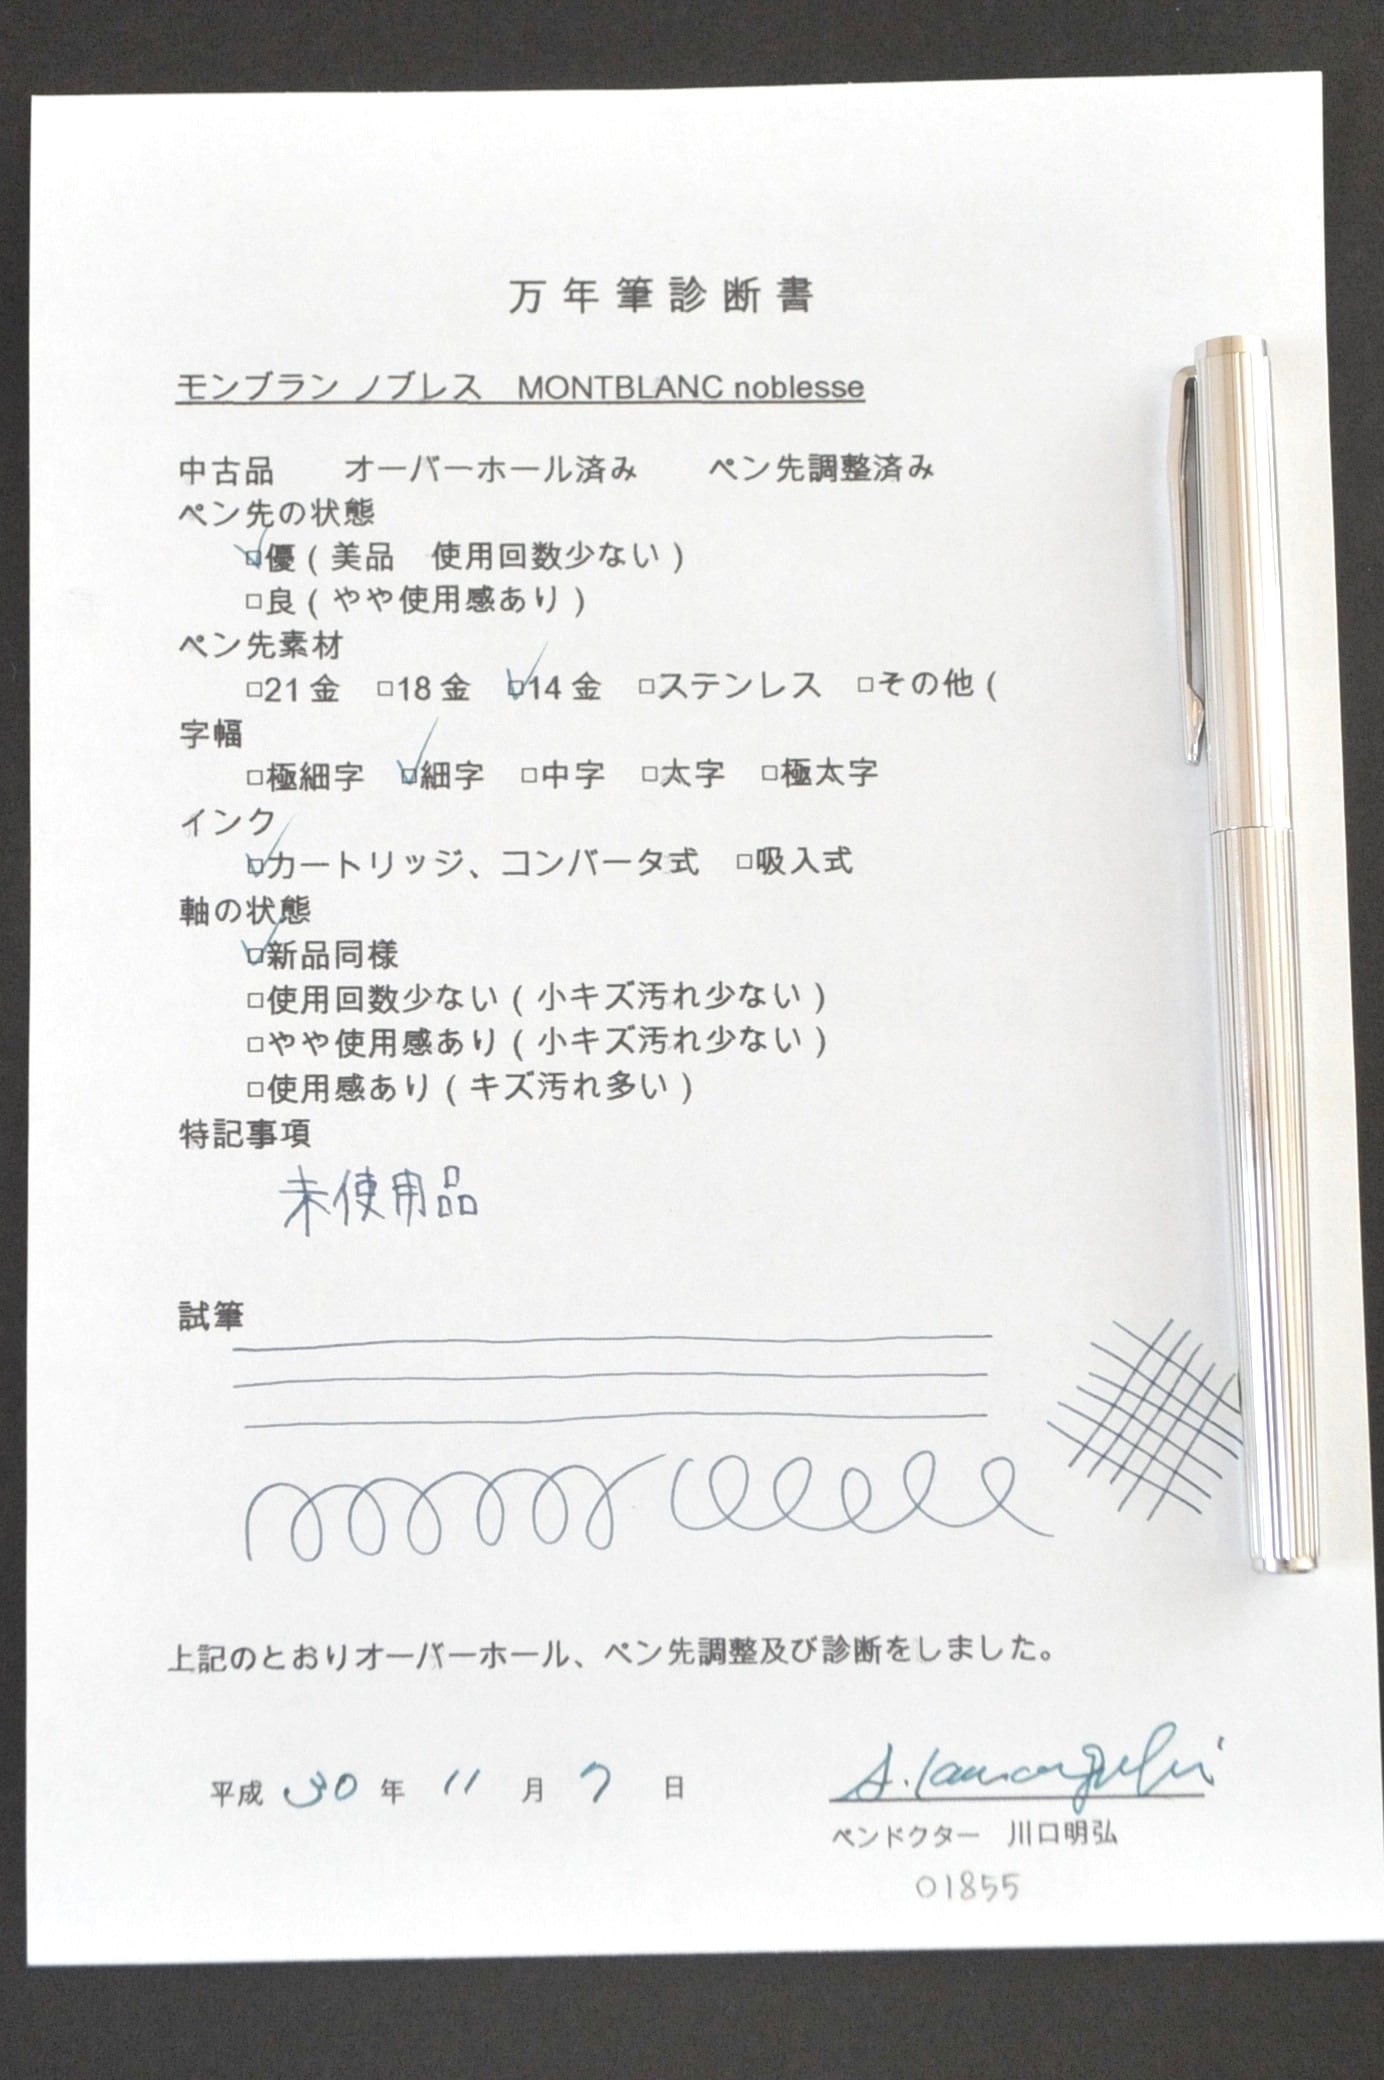 万年筆診断書
モンブラン ノブレス　MONTBLANC noblesse
中古品　　オーバーホール済み　　ペン先調整済み
ペン先の状態
□優（美品　使用回数少ない）
□良（やや使用感あり）
ペン先素材
□21金　□18金　□14金　□ステンレス　□その他（
字幅
□極細字　□細字　□中字　□太字　□極太字
インク
□カートリッジ、コンバータ式　□吸入式
軸の状態
□新品同様
□使用回数少ない（小キズ汚れ少ない）
□やや使用感あり（小キズ汚れ少ない）
□使用感あり（キズ汚れ多い）
特記事項
未使用品
試筆
上記のとおりオーバーホール、ペン先調整及び診断をしました。
平成 30 年 11 月 7 日
A. Kawaguchi
ペンドクター　川口明弘
01855